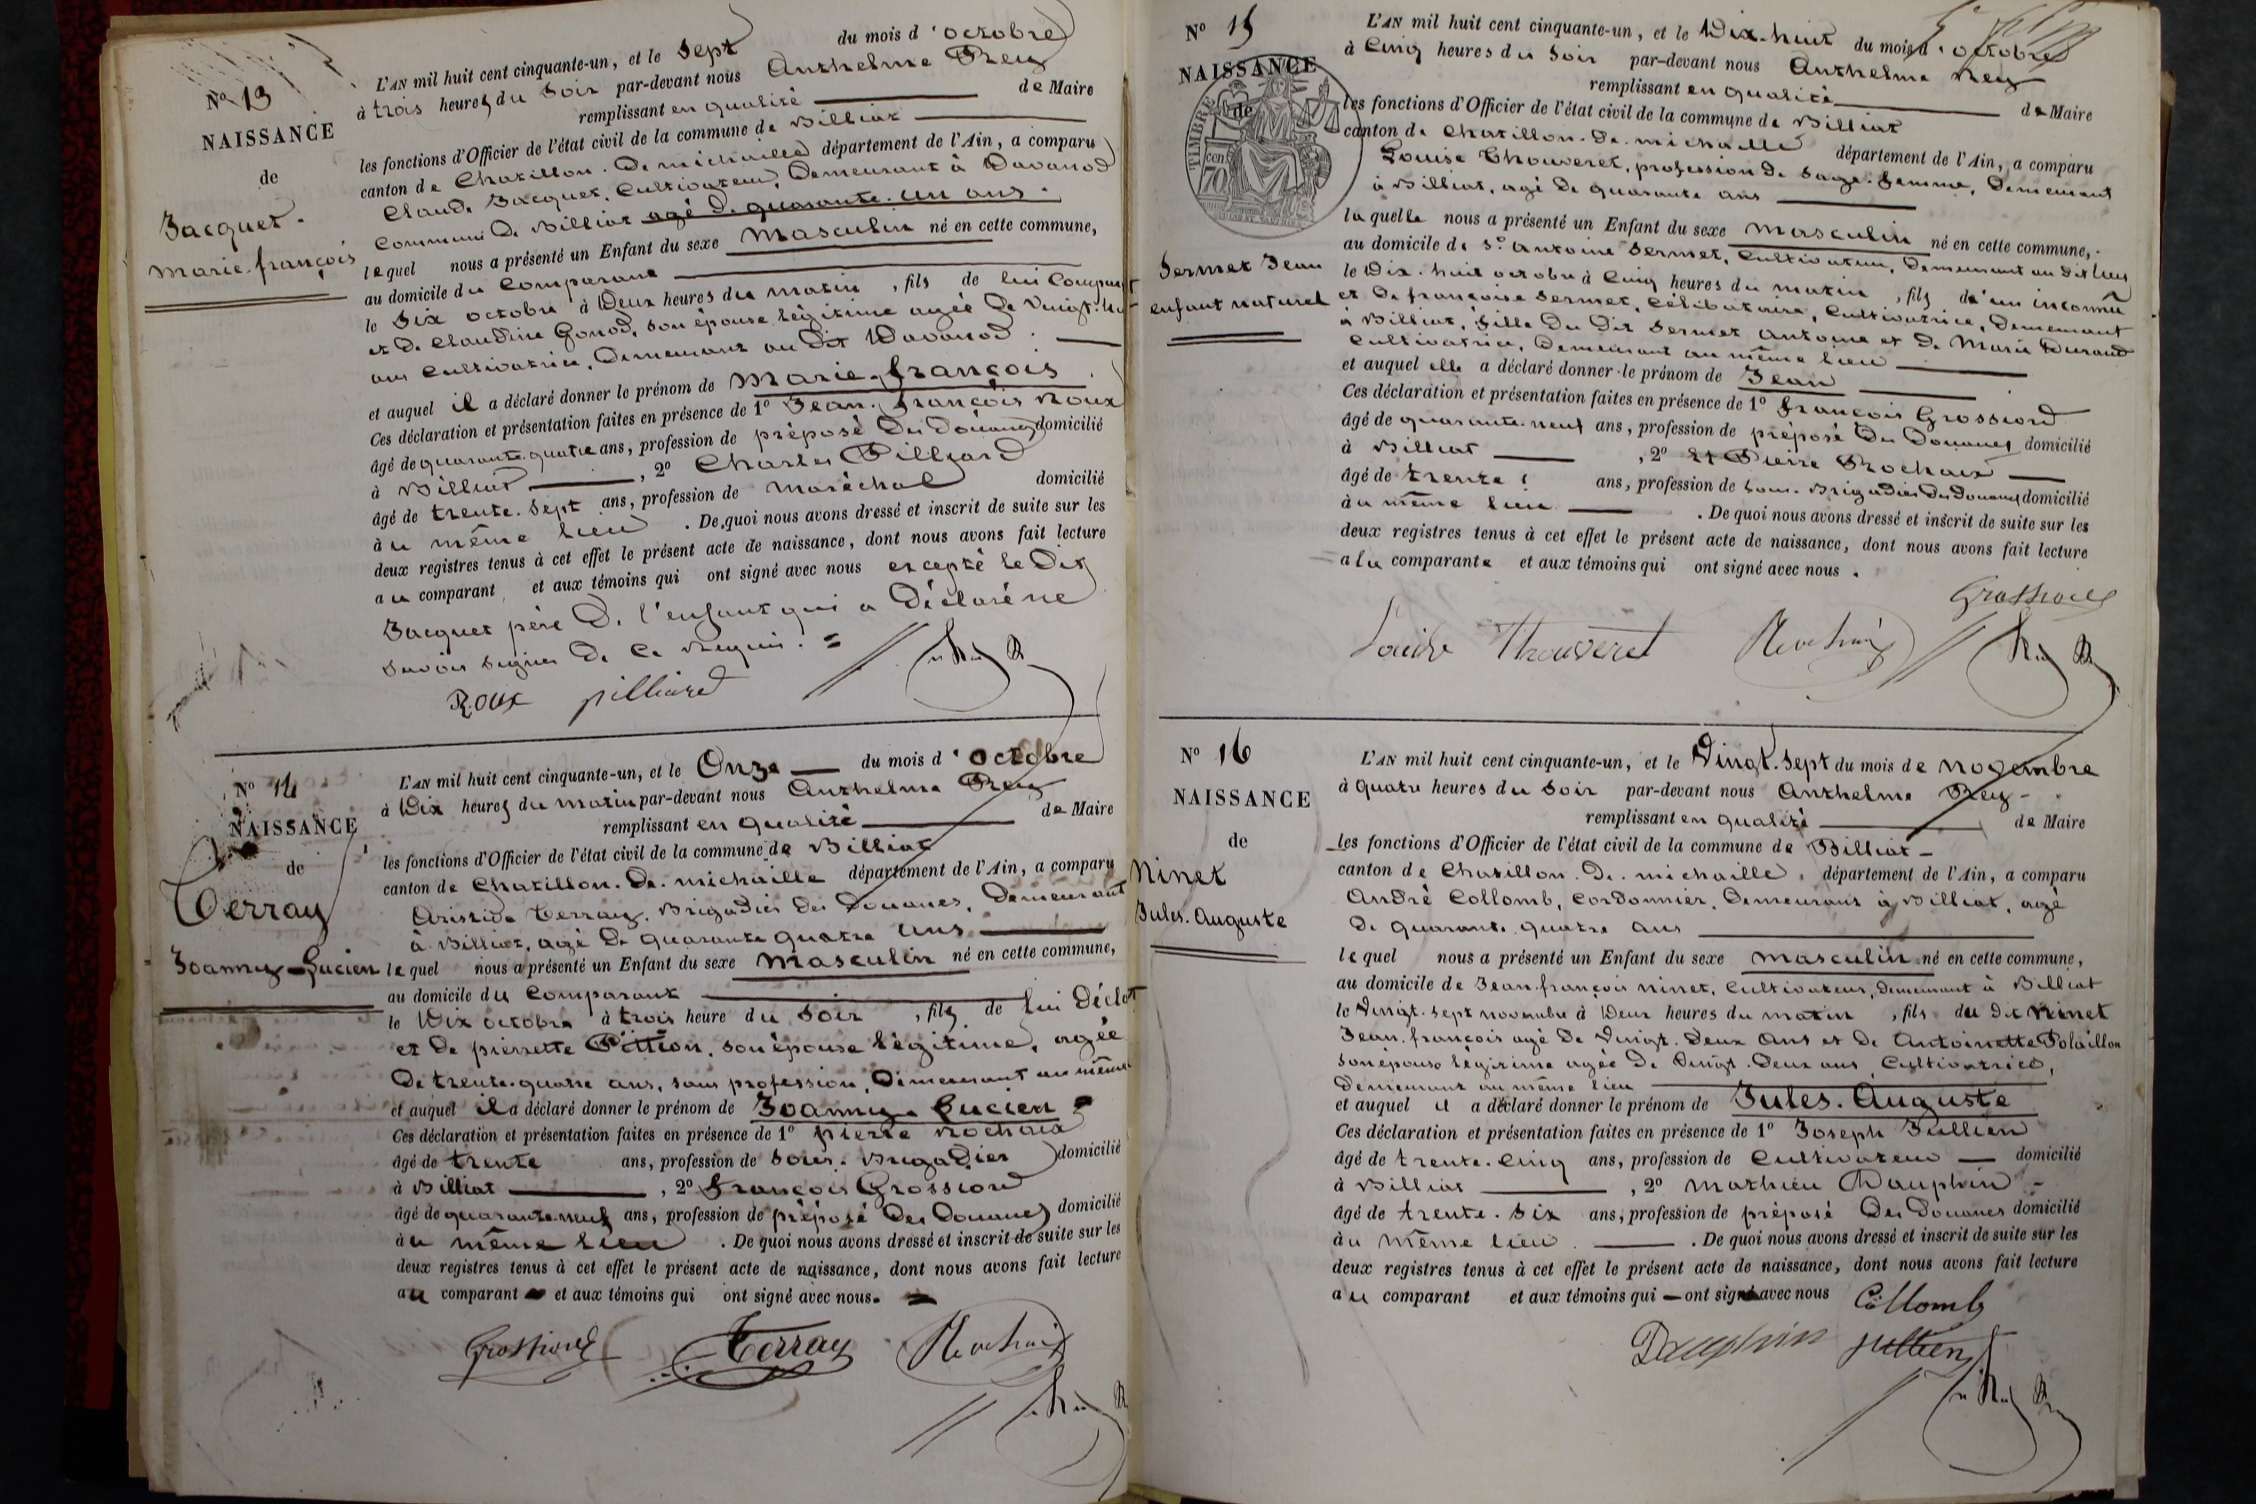 N° 13
NAISSANCE
de
Jacquet.
marie-françois
L'AN mil huit cent cinquante-un, et le sept du mois d'octobre
à trois heures du soir par-devant nous Anthelme Rey
remplissant en qualité de Maire
les fonctions d'Officier de l'état civil de la commune de Billiat
canton de Chatillon. De. michaille département de l'Ain, a comparu
Claude Jacquet, Cultivateur, Demeurant à Davanod
Commune De Billiat agé De quarante-un ans.
lequel nous a présenté un Enfant du sexe masculin né en cette commune,
au domicile du comparant
le six octobre à Deux heures du matin, fils de lui Comparant
et De claudine Gonod, son épouse légitime agée De vingt-huit
ans cultivatrice, Demeurant au Dit Davanod.
et auquel il a déclaré donner le prénom de marie-françois
Ces déclaration et présentation faites en présence de 1° Jean-françois Roux
âgé de quarante-quatre ans, profession de préposé Des Douanes domicilié
à Billiat, 2° Charles Pilliard
âgé de trente-sept ans, profession de maréchal domicilié
au même lieu. De quoi nous avons dressé et inscrit de suite sur les
deux registres tenus à cet effet le présent acte de naissance, dont nous avons fait lecture
au comparant et aux témoins qui ont signé avec nous excepté le Dit
Jacquet père De l'enfant qui a Déclaré ne
savoir signer De ce Requis. =
Roux pilliard
N° 14
NAISSANCE
de
Terray
Joanny-Lucien
L'AN mil huit cent cinquante-un, et le Onze du mois d'octobre
à Dix heures du matin par-devant nous Anthelme Rey
remplissant en qualité de Maire
les fonctions d'Officier de l'état civil de la commune de Billiat
canton de Chatillon. De. michaille département de l'Ain, a comparu
Aristide Terray, Brigadier Des Douanes, Demeurant
à Billiat, agé De quarante quatre ans
lequel nous a présenté un Enfant du sexe masculin né en cette commune,
au domicile du Comparant
le Dix octobre à trois heure du soir, fils de lui Déclat
et De pierrette Pittion, son épouse légitime, agée
De trente-quatre ans, sans profession, Demeurant au même
et auquel il a déclaré donner le prénom de Joanny-Lucien
Ces déclaration et présentation faites en présence de 1° pierre Rochaix
âgé de trente ans, profession de sous-Brigadier domicilié
à Billiat, 2° François Grossiord
âgé de quarante-neuf ans, profession de préposé Des Douanes domicilié
au même lieu. De quoi nous avons dressé et inscrit de suite sur les
deux registres tenus à cet effet le présent acte de naissance, dont nous avons fait lecture
au comparant et aux témoins qui ont signé avec nous.
Grossiord Terray Rochaix
N° 15
NAISSANCE
de
TIMBRE
70
Sermet Jean
enfant naturel
L'AN mil huit cent cinquante-un, et le Dix-huit du mois d'octobre
à Cinq heures du soir par-devant nous Anthelme Rey
remplissant en qualité de Maire
les fonctions d'Officier de l'état civil de la commune de Billiat
canton de Chatillon. De. michaille département de l'Ain, a comparu
Louise Thouveret, profession De sage-femme, Demeurant
à Billiat, agé De quarante ans
laquelle nous a présenté un Enfant du sexe masculin né en cette commune,
au domicile de Sr Antoine Sermet, cultivateur, Demeurant au dit lieu
le Dix-huit octobre à Cinq heures du matin, fils d'un inconnu
et De françoise Sermet, Célibataire, Cultivatrice, Demeurant
à Billiat, fille Du Dit Sermet Antoine et De Marie Durand
Cultivatrice, Demeurant au même lieu
et auquel elle a déclaré donner le prénom de Jean
Ces déclaration et présentation faites en présence de 1° françois Grossiord
âgé de quarante-neuf ans, profession de préposé Des Douanes domicilié
à Billiat, 2° Pierre Rochaix
âgé de trente ans, profession de sous-Brigadier Des Douanes domicilié
au même lieu. De quoi nous avons dressé et inscrit de suite sur les
deux registres tenus à cet effet le présent acte de naissance, dont nous avons fait lecture
a la comparante et aux témoins qui ont signé avec nous.
Grossiord
Louise Thouveret Rochaix
N° 16
NAISSANCE
de
Ninet
Jules-Auguste
L'AN mil huit cent cinquante-un, et le Vingt-sept du mois de novembre
à quatre heures du soir par-devant nous Anthelme Rey
remplissant en qualité de Maire
les fonctions d'Officier de l'état civil de la commune de Billiat
canton de Chatillon. De. michaille, département de l'Ain, a comparu
André Collomb, Cordonnier, Demeurant à Billiat, agé
De quarante-quatre ans
lequel nous a présenté un Enfant du sexe masculin né en cette commune,
au domicile de Jean-françois ninet, Cultivateur, Demeurant à Billiat
le Vingt-sept novembre à Deux heures du matin, fils du dit Ninet
Jean-françois agé De Vingt-Deux ans et De Antoinette Polaillon
son épouse légitime agée De Vingt-Deux ans, Cultivatrice,
Demeurant au même lieu
et auquel il a déclaré donner le prénom de Jules-Auguste
Ces déclaration et présentation faites en présence de 1° Joseph Jullien
âgé de trente-cinq ans, profession de Cultivateur domicilié
à Billiat, 2° mathieu Dauphin
âgé de trente-six ans, profession de préposé Des Douanes domicilié
au même lieu. De quoi nous avons dressé et inscrit de suite sur les
deux registres tenus à cet effet le présent acte de naissance, dont nous avons fait lecture
au comparant et aux témoins qui ont signé avec nous Collomb
Dauphin jullien